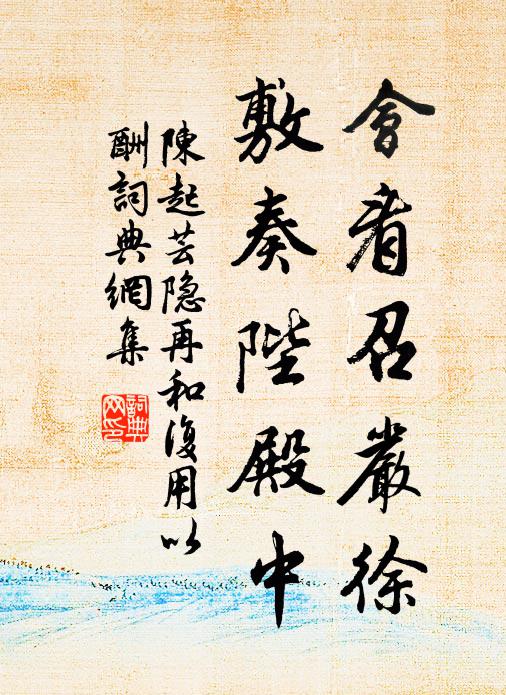 會看召嚴徐
敷奏陛殿中
陳起芸隐再和復用以
酬詞典網集
詞典
网印